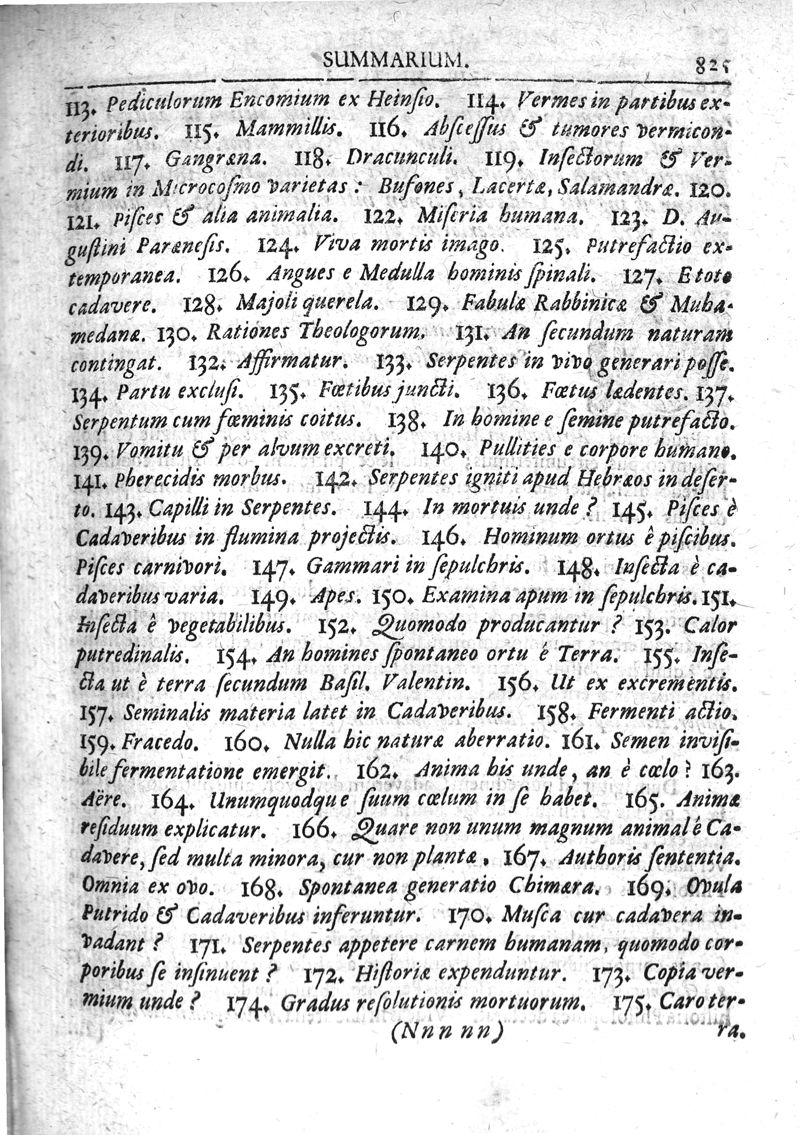 SUMMARIUM. 825
113. Pediculorum Encomium ex Heinſio. 114. Vermes in partibus ex-
terioribus. 115. Mammillis. 116. Abſceſſus & tumores vermicon-
di. 117. Gangræna. 118. Dracunculi. 119. Inſectorum & Ver-
mium in Microcoſmo varietas: Bufones, Lacertæ, Salamandræ. 120.
121. Piſces & alia animalia. 122. Miſeria humana. 123. D. Au-
guſtini Parænеſis. 124. Viva mortis imago. 125. Putrefactio ex-
temporanea. 126. Angues e Medulla hominis ſpinali. 127. E toto
cadavere. 128. Majoli querela. 129. Fabulæ Rabbinicæ & Muha-
medanæ. 130. Rationes Theologorum. 131. An ſecundum naturam
contingat. 132. Affirmatur. 133. Serpentes in vivo generari poſſe.
134. Partu excluſi. 135. Fœtibus juncti. 136. Fœtus lædentes. 137.
Serpentum cum fœminis coitus. 138. In homine e ſemine putrefacto.
139. Vomitu & per alvum excreti. 140. Pullities e corpore humano.
141. Pherecidis morbus. 142. Serpentes igniti apud Hebræos in deſer-
to. 143. Capilli in Serpentes. 144. In mortuis unde? 145. Piſces è
Cadaveribus in flumina projectis. 146. Hominum ortus ê piſcibus.
Piſces carnivori. 147. Gammari in ſepulchris. 148. Inſecta è ca-
daveribus varia. 149. Apes. 150. Examina apum in ſepulchris. 151.
Inſecta ê vegetabilibus. 152. Quomodo producantur? 153. Calor
putredinalis. 154. An homines ſpontaneo ortu é Terra. 155. Inſe-
cta ut è terra ſecundum Baſil. Valentin. 156. Ut ex excrementis.
157. Seminalis materia latet in Cadaveribus. 158. Fermenti actio.
159. Fracedo. 160. Nulla hic naturæ aberratio. 161. Semen inviſi-
bile fermentatione emergit. 162. Anima his unde, an è cœlo? 163.
Aëre. 164. Unumquodque ſuum cœlum in ſe habet. 165. Animæ
reſiduum explicatur. 166. Quare non unum magnum animal ê Ca-
davere, ſed multa minora, cur non plantæ. 167. Authoris ſententia.
Omnia ex ovo. 168. Spontanea generatio Chimæra. 169. Ovula
Putrido & Cadaveribus inferuntur. 170. Muſca cur cadavera in-
vadant? 171. Serpentes appetere carnem humanam, quomodo cor-
poribus ſe inſinuent? 172. Hiſtoriæ expenduntur. 173. Copia ver-
mium unde? 174. Gradus reſolutionis mortuorum. 175. Caro ter-
(Nnn nn) ra.